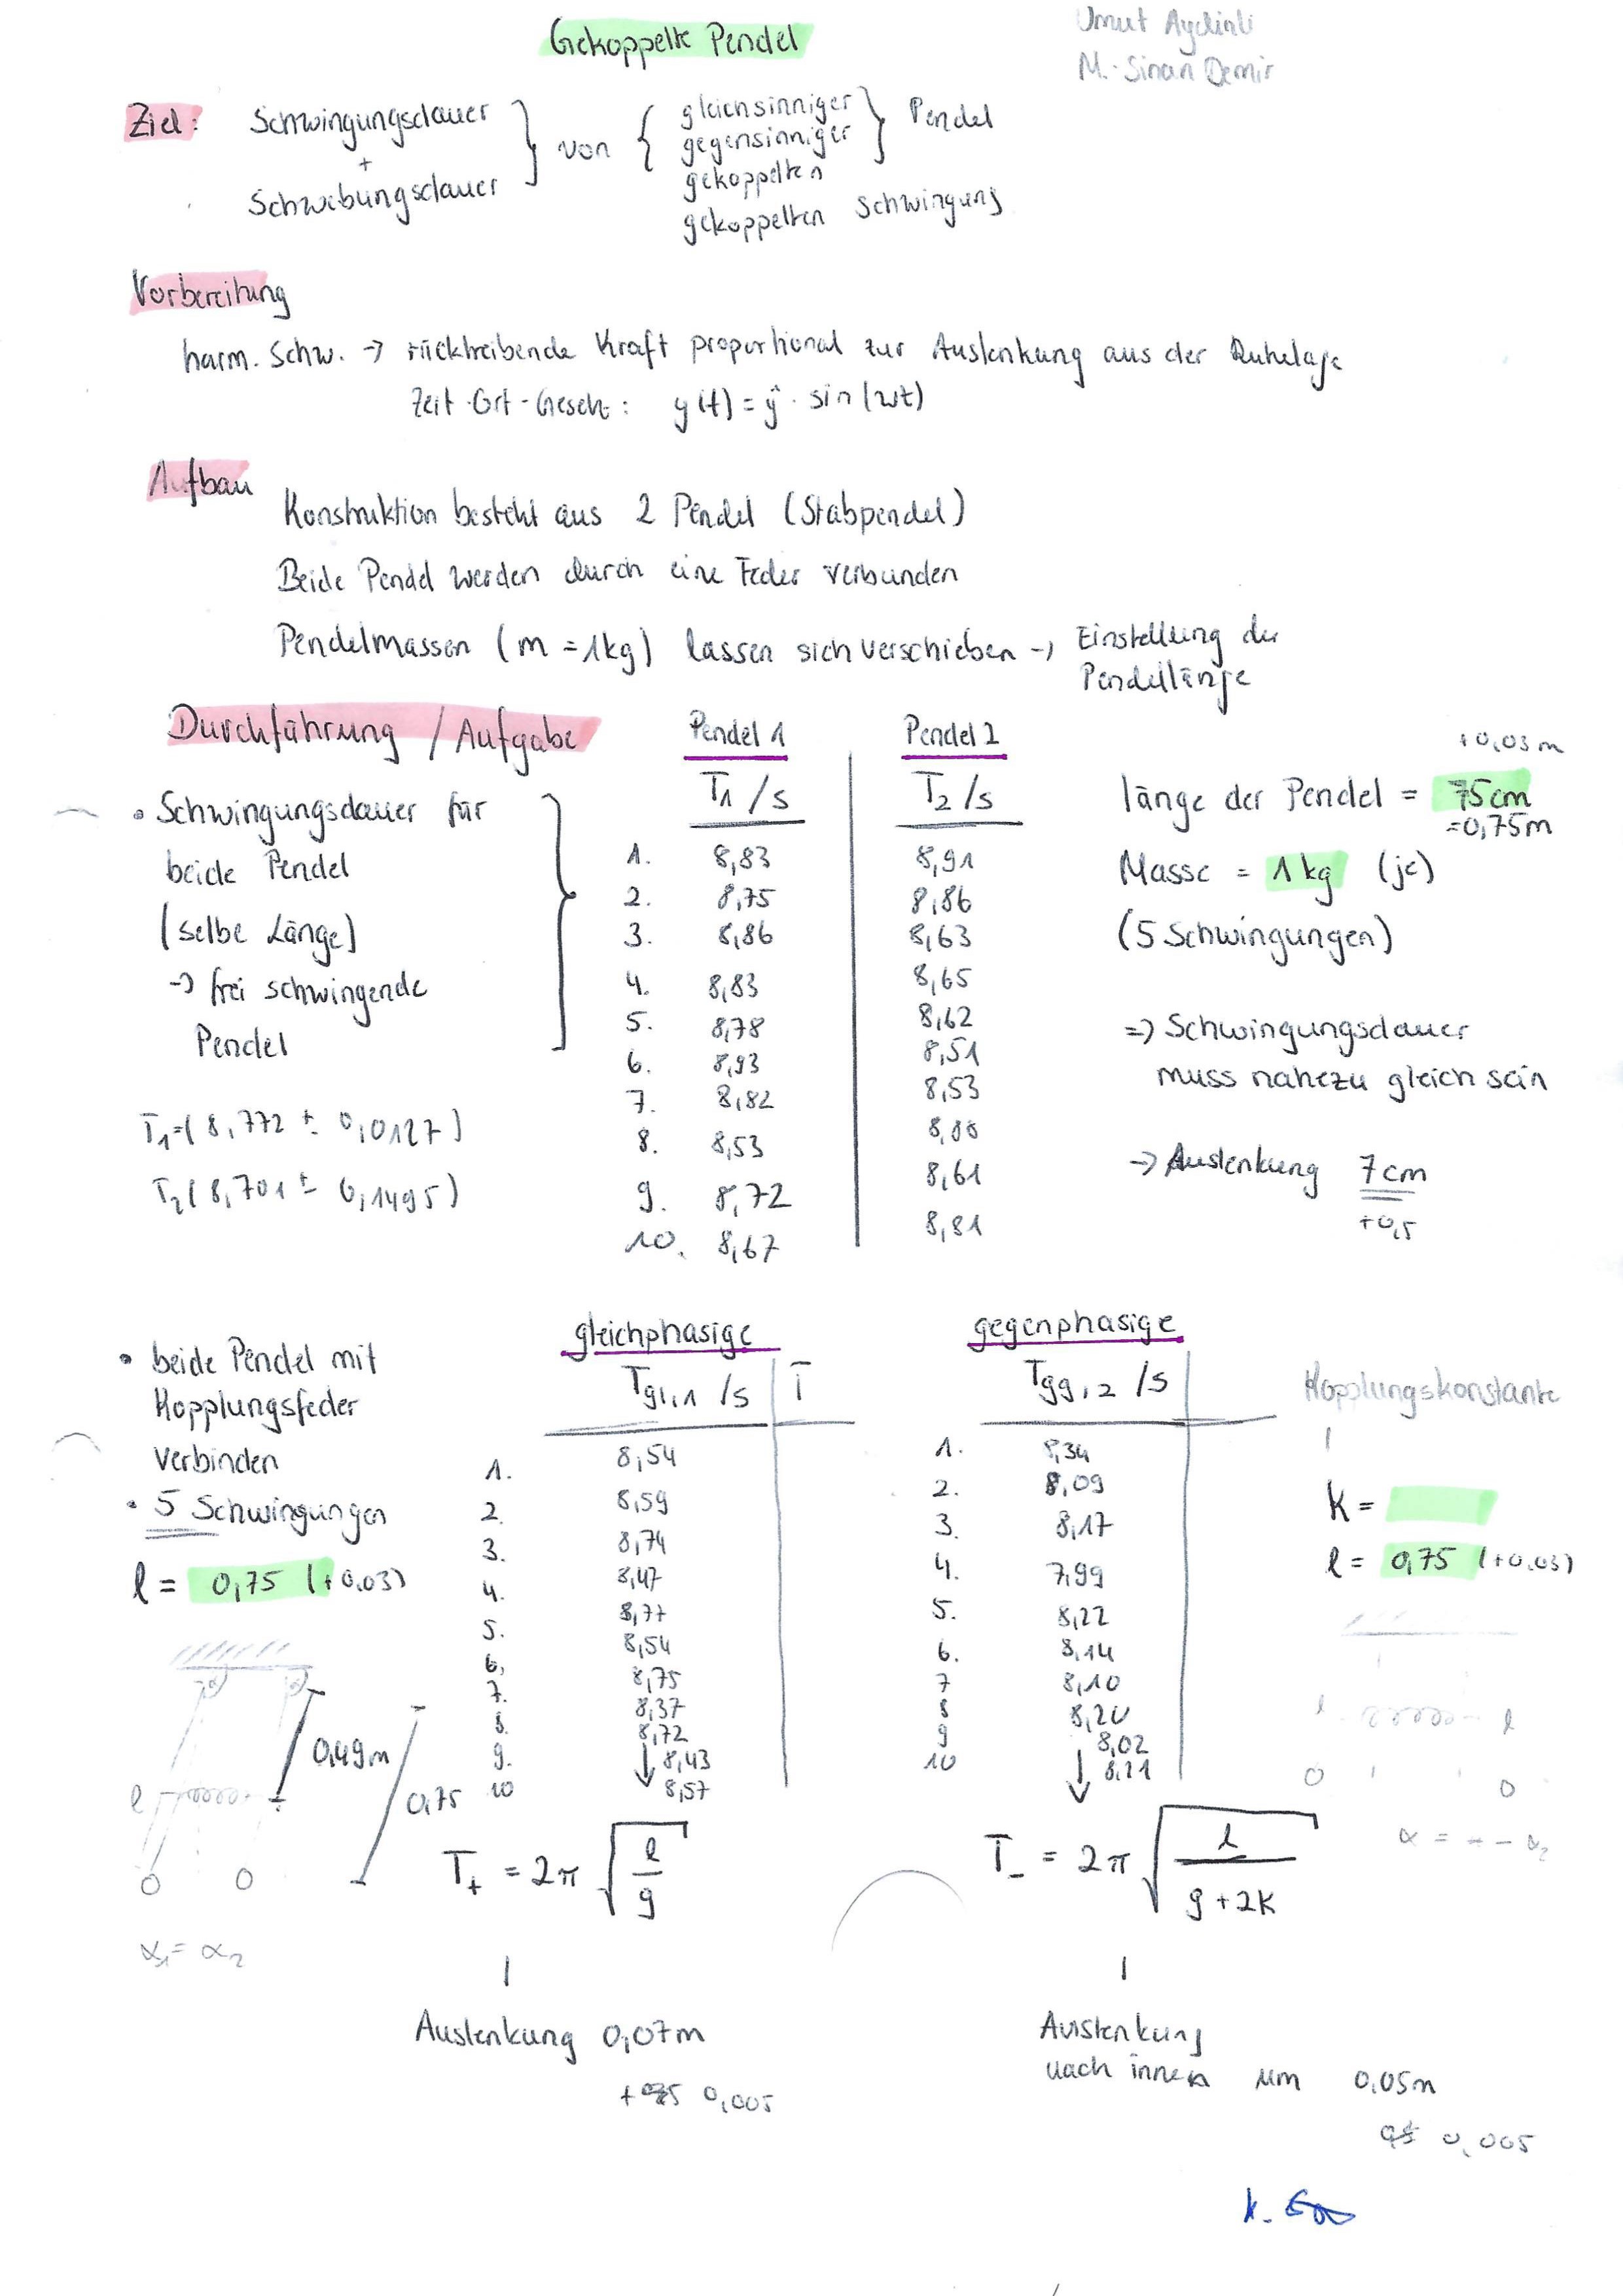 Gekoppelte Pendel
Umut Aydinli
M. Sinan Demir
Ziel: Schwingungsdauer + Schwebungsdauer } von { gleichsinniger
gegensinniger } Pendel
gekoppelten
gekoppelten Schwingung
Vorbereitung
harm. Schw. → rücktreibende Kraft proportional zur Auslenkung aus der Ruhelage
Zeit-Ort-Gesetz: y(t) = ŷ · sin(ωt)
Aufbau
Konstruktion besteht aus 2 Pendel (Stabpendel)
Beide Pendel werden durch eine Feder verbunden
Pendelmassen (m = 1kg) lassen sich verschieben → Einstellung der
Pendellänge
Durchführung / Aufgabe
• Schwingungsdauer für
beide Pendel
(selbe Länge)
→ frei schwingende
Pendel
T₁=(8,772 ± 0,0127)
T₂(8,701 ± 0,1495)
Pendel 1 Pendel 2
T₁ /s T₂ /s
1. 8,83 8,91
2. 8,75 8,86
3. 8,86 8,63
4. 8,83 8,65
5. 8,78 8,62
6. 8,93 8,51
7. 8,82 8,53
8. 8,53
9. 8,72 8,61
10. 8,67 8,81
+0,03m
länge der Pendel = 75cm
=0,75m
Masse = 1 kg (je)
(5 Schwingungen)
=> Schwingungsdauer
muss nahezu gleich sein
→ Auslenkung 7cm
+0,5
• beide Pendel mit
Kopplungsfeder
verbinden
• 5 Schwingungen
l = 0,75 (+0.03)
gleichphasige
Tgl,1 /s T
1. 8,54
2. 8,59
3. 8,74
4. 8,47
5. 8,77
6. 8,54
7. 8,75
8. 8,37
9. 8,72
10 8,43
8,57
gegenphasige
Tgg,2 /s
1. 8,34
2. 8,09
3. 8,17
4. 7,99
5. 8,22
6. 8,14
7 8,10
8 8,20
9 8,02
10 8,11
Kopplungskonstante
K =
l = 0,75 (+0.03)
0,49m
0,75
l
α₁ = α₂
l l
α = - - α₂
T₊ = 2π √(l/g)
T₋ = 2π √(l/(g+2K))
Auslenkung 0,07m
0,005
Auslenkung
nach innen um 0,05m
0,005